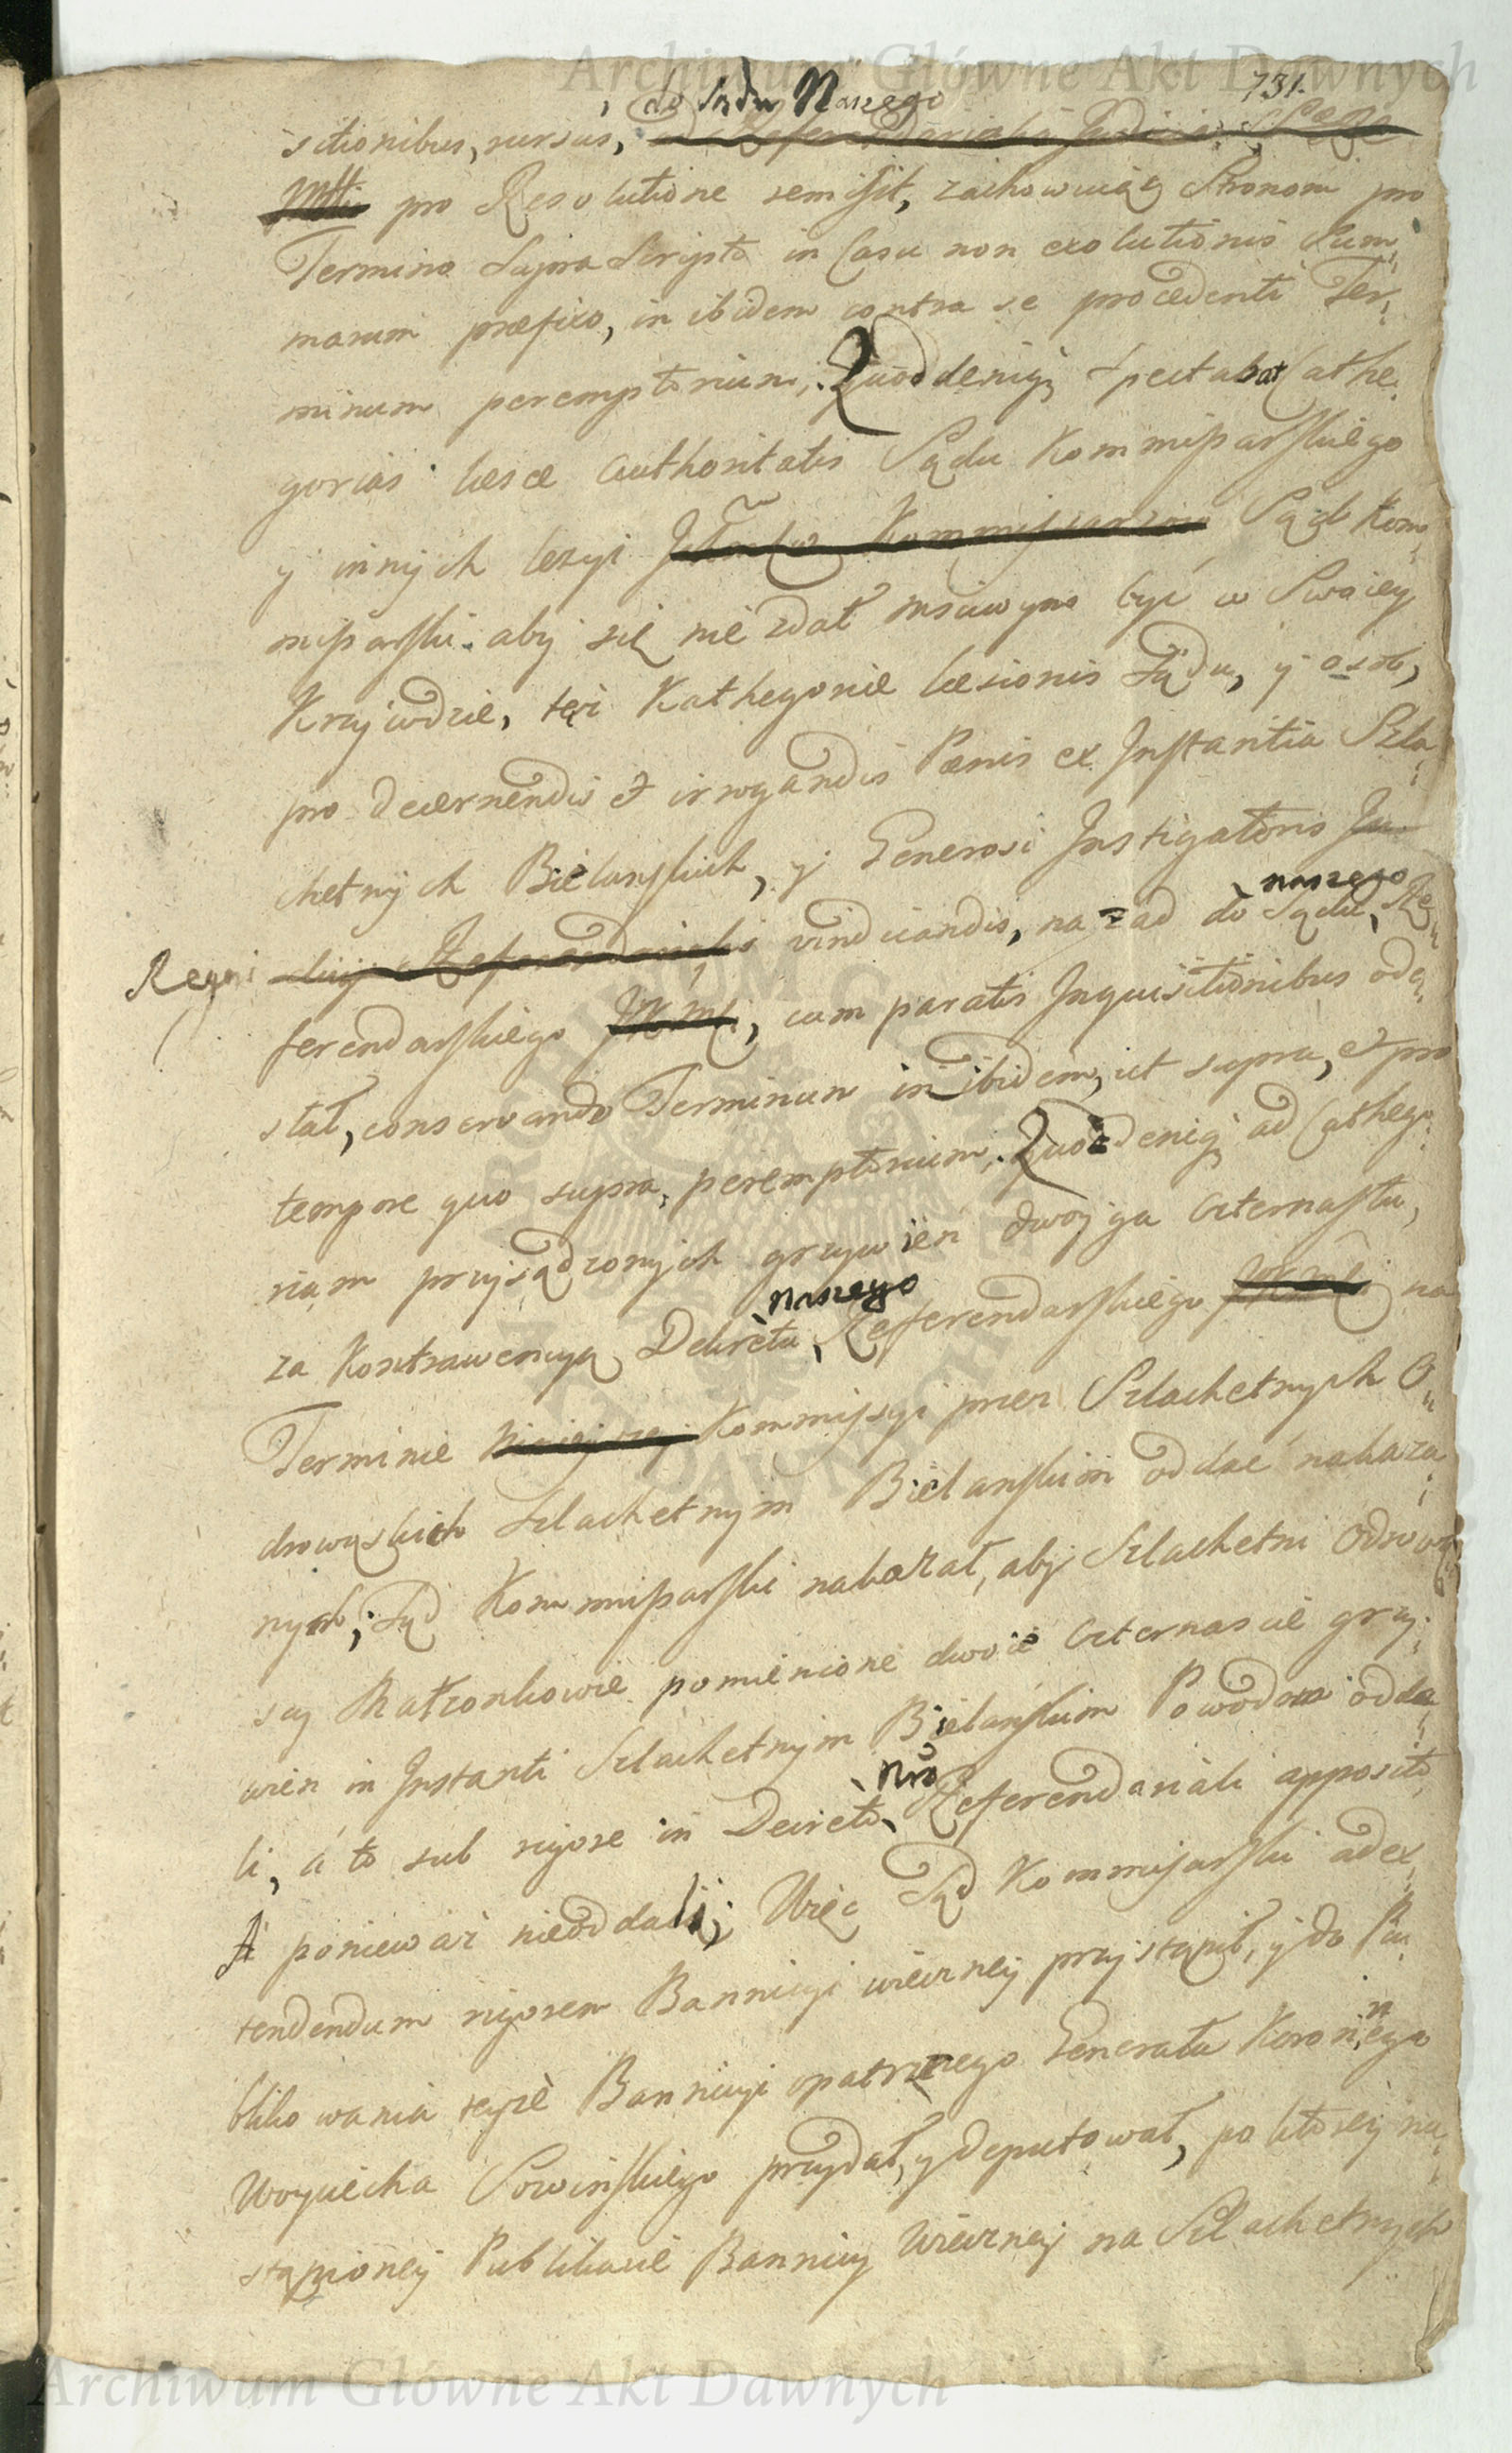 Archiwum Główne Akt Dawnych
731.
do Sądu Naszego
sitionibus, rursus, ad Referendarialia Judicia S. R.
Mtti pro Resolutione remisit, zachowuiąc Stronom pro
Termino Supra Scripto in Casu non exolutionis Sum„
marum præfixo, in ibidem contra se procedenti Ter„
minum peremptorium; Quod deniq spectabat Cathe„
gorias læsæ Authoritatis Sądu Kommissarskiego
y innych lezyi Kommissarzow Sąd Kom„
missarski aby się nie zdał mściwym być w Swoiey
Krzywdzie, też Kathegorie læsionis Sądu, y osob,
pro decernendis et irrogandis Pœnis ex Instantia Szla„
chetnych Bielanskich, y Generosi Instigatoris Ju„
naszego
Regni diij Referendarialis vindicandis, nazad do Sądu Re„
ferendarskiego JKMci, cum paratis Inquisitionibus ode„
słał, conservando Terminum in ibidem, ut supra, et pro
tempore quo supra, peremptorium; Quod deniq ad Cathego„
riam przysądzonych grzywien dwoyga czternastu,
naszego
za Kontrawencyą Dekretu Referendarskiego JKMci na
Terminie ninieyszey Kommissyi przez Szlachetnych O„
drowąskich Szlachetnym Bielanskim oddać nakaza„
nych; Sąd Kommissarski nakazał, aby Szlachetni Odrową„
scy Małżonkowie pomienione dwoie czternascie grzy„
wien in Instanti Szlachetnym Bielanskim Powodom odda„
Nro
li, á to sub rigore in Decreto Referendariali apposito,
A ponieważ nieoddali; Więc Sąd Kommissarski ad ex„
tendendum rigorem Bannicyi wieczney przystąpił, y do Pu„
blikowania teyże Bannicyi opatrznego Generała Koronnego
Woyciecha Sowinskiego przydał, y deputował, po ktorey na„
stąpioney Publikacie Bannicy Wieczney na Szlachetnych
Archiwum Główne Akt Dawnych